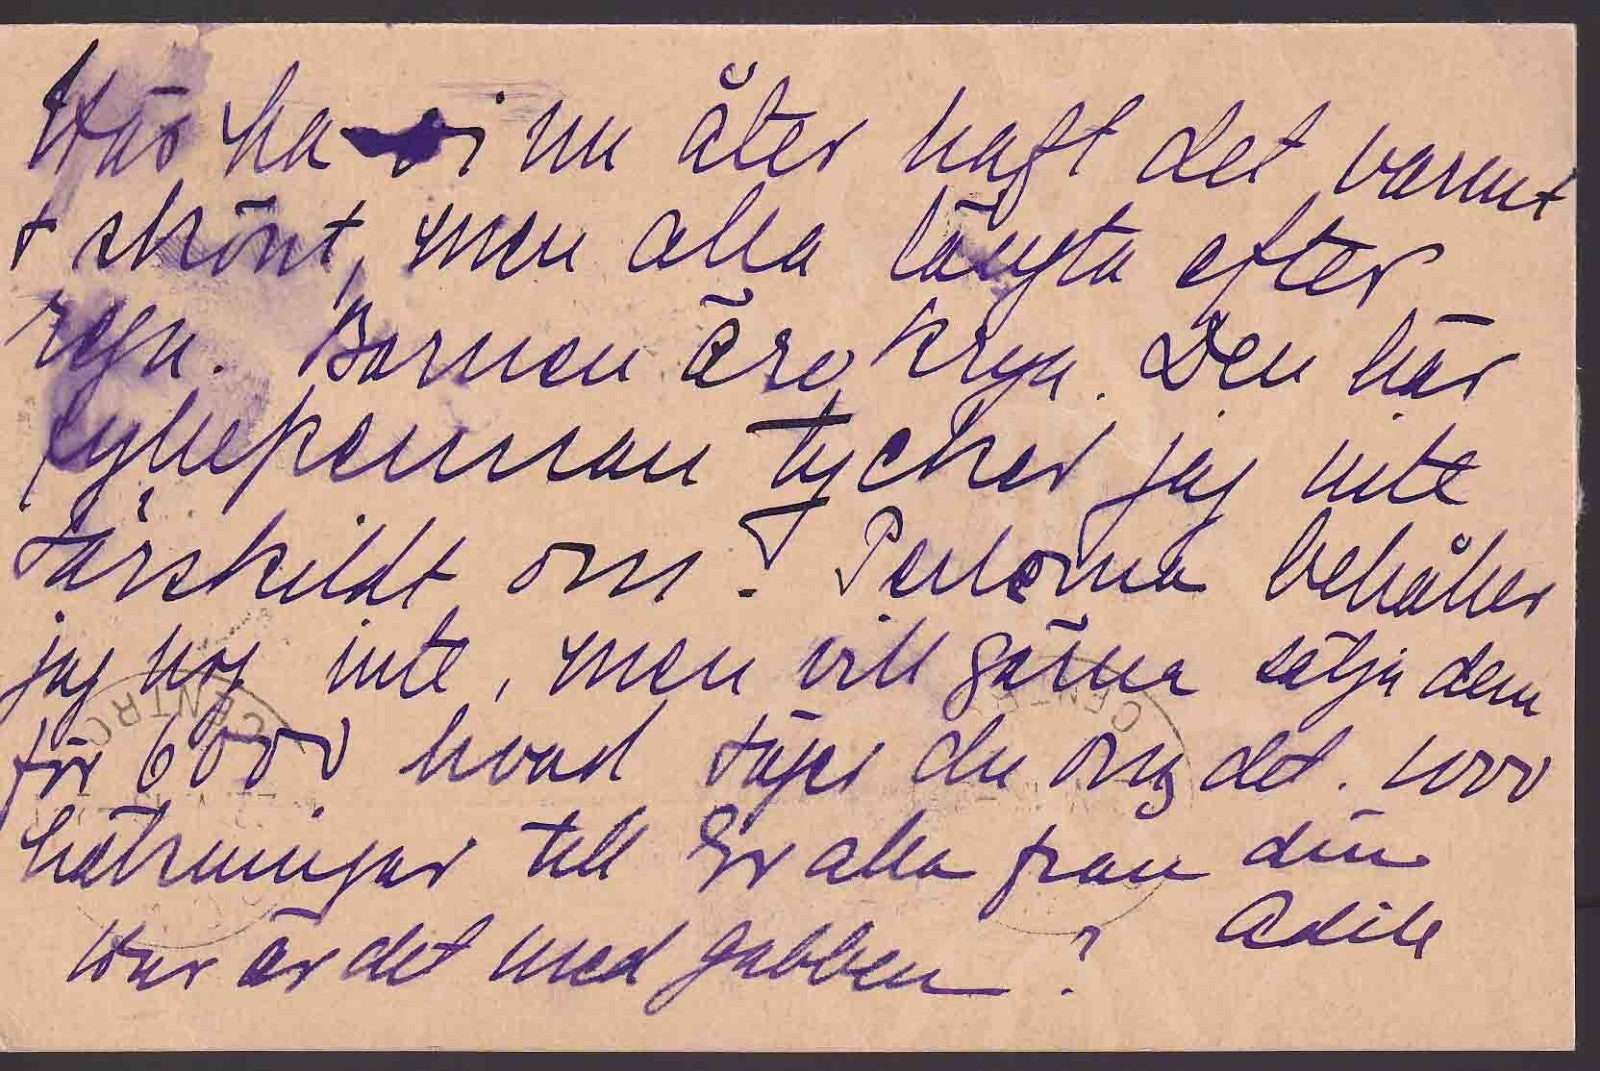 Här ha vi nu åter haft det varmt
& skönt, men alla längta efter
regn. Barnen äro krya. Den här
fyllepennan tycker jag inte
särskildt om. Perlorna behåller
jag nog inte, men vill gärna sälja dem
för 6000 hvad säger du om det. 1000
hälsningar till Er alla från din
Adile
Hur är det med gubben?
CENTRO
CENT